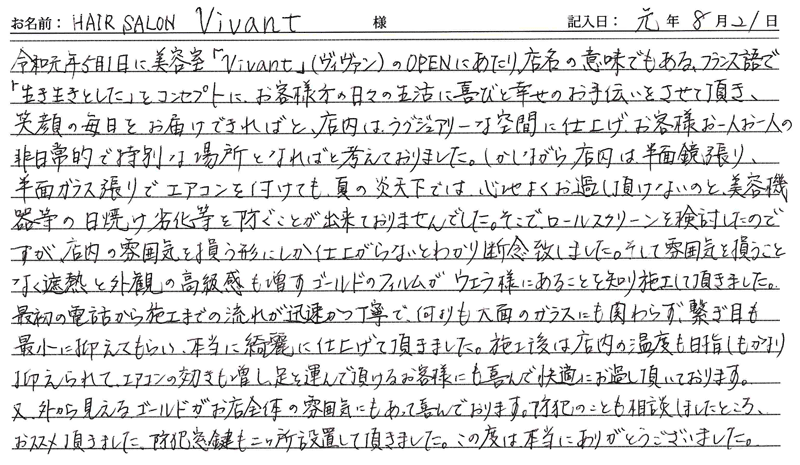 お名前： HAIR SALON Vivant 様 記入日： 元 年 8 月 21 日
令和元年5月1日に美容室「Vivant」(ヴィヴァン)のOPENにあたり、店名の意味でもある、フランス語で
「生き生きとした」をコンセプトに、お客様方の日々の生活に喜びと幸せのお手伝いをさせて頂き、
笑顔の毎日をお届けできればと、店内は、ラグジュアリーな空間に仕上げ、お客様お一人お一人の
非日常的で特別な場所となればと考えておりました。しかしながら、店内は半面鏡張り、
半面ガラス張りで エアコンを付けても、夏の炎天下では、心地よくお過し頂けないのと、美容機
器等の日焼け劣化等を防ぐことが出来ておりませんでした。そこで、ロールスクリーンを検討したので
すが、店内の雰囲気を損う形にしか仕上がらないとわかり断念致しました。そして雰囲気を損うこと
なく遮熱と外観の高級感も増すゴールドのフィルムが ウエラ様にあることを知り施工して頂きました。
最初の電話から施工までの流れが迅速かつ丁寧で、何よりも大面のガラスにも関わらず、繋ぎ目も
最小に抑えてもらい、本当に綺麗に仕上げて頂きました。施工後は店内の温度も日指しもかなり
抑えられて、エアコンの効きも増し、足を運んで頂けるお客様にも喜んで快適にお過し頂いております。
又、外から見えるゴールドがお店全体の雰囲気にもあって喜んでおります。防犯のことも相談しましたところ、
おススメ頂きました、防犯窓鍵も二ヶ所設置して頂きました。この度は、本当にありがとうございました。